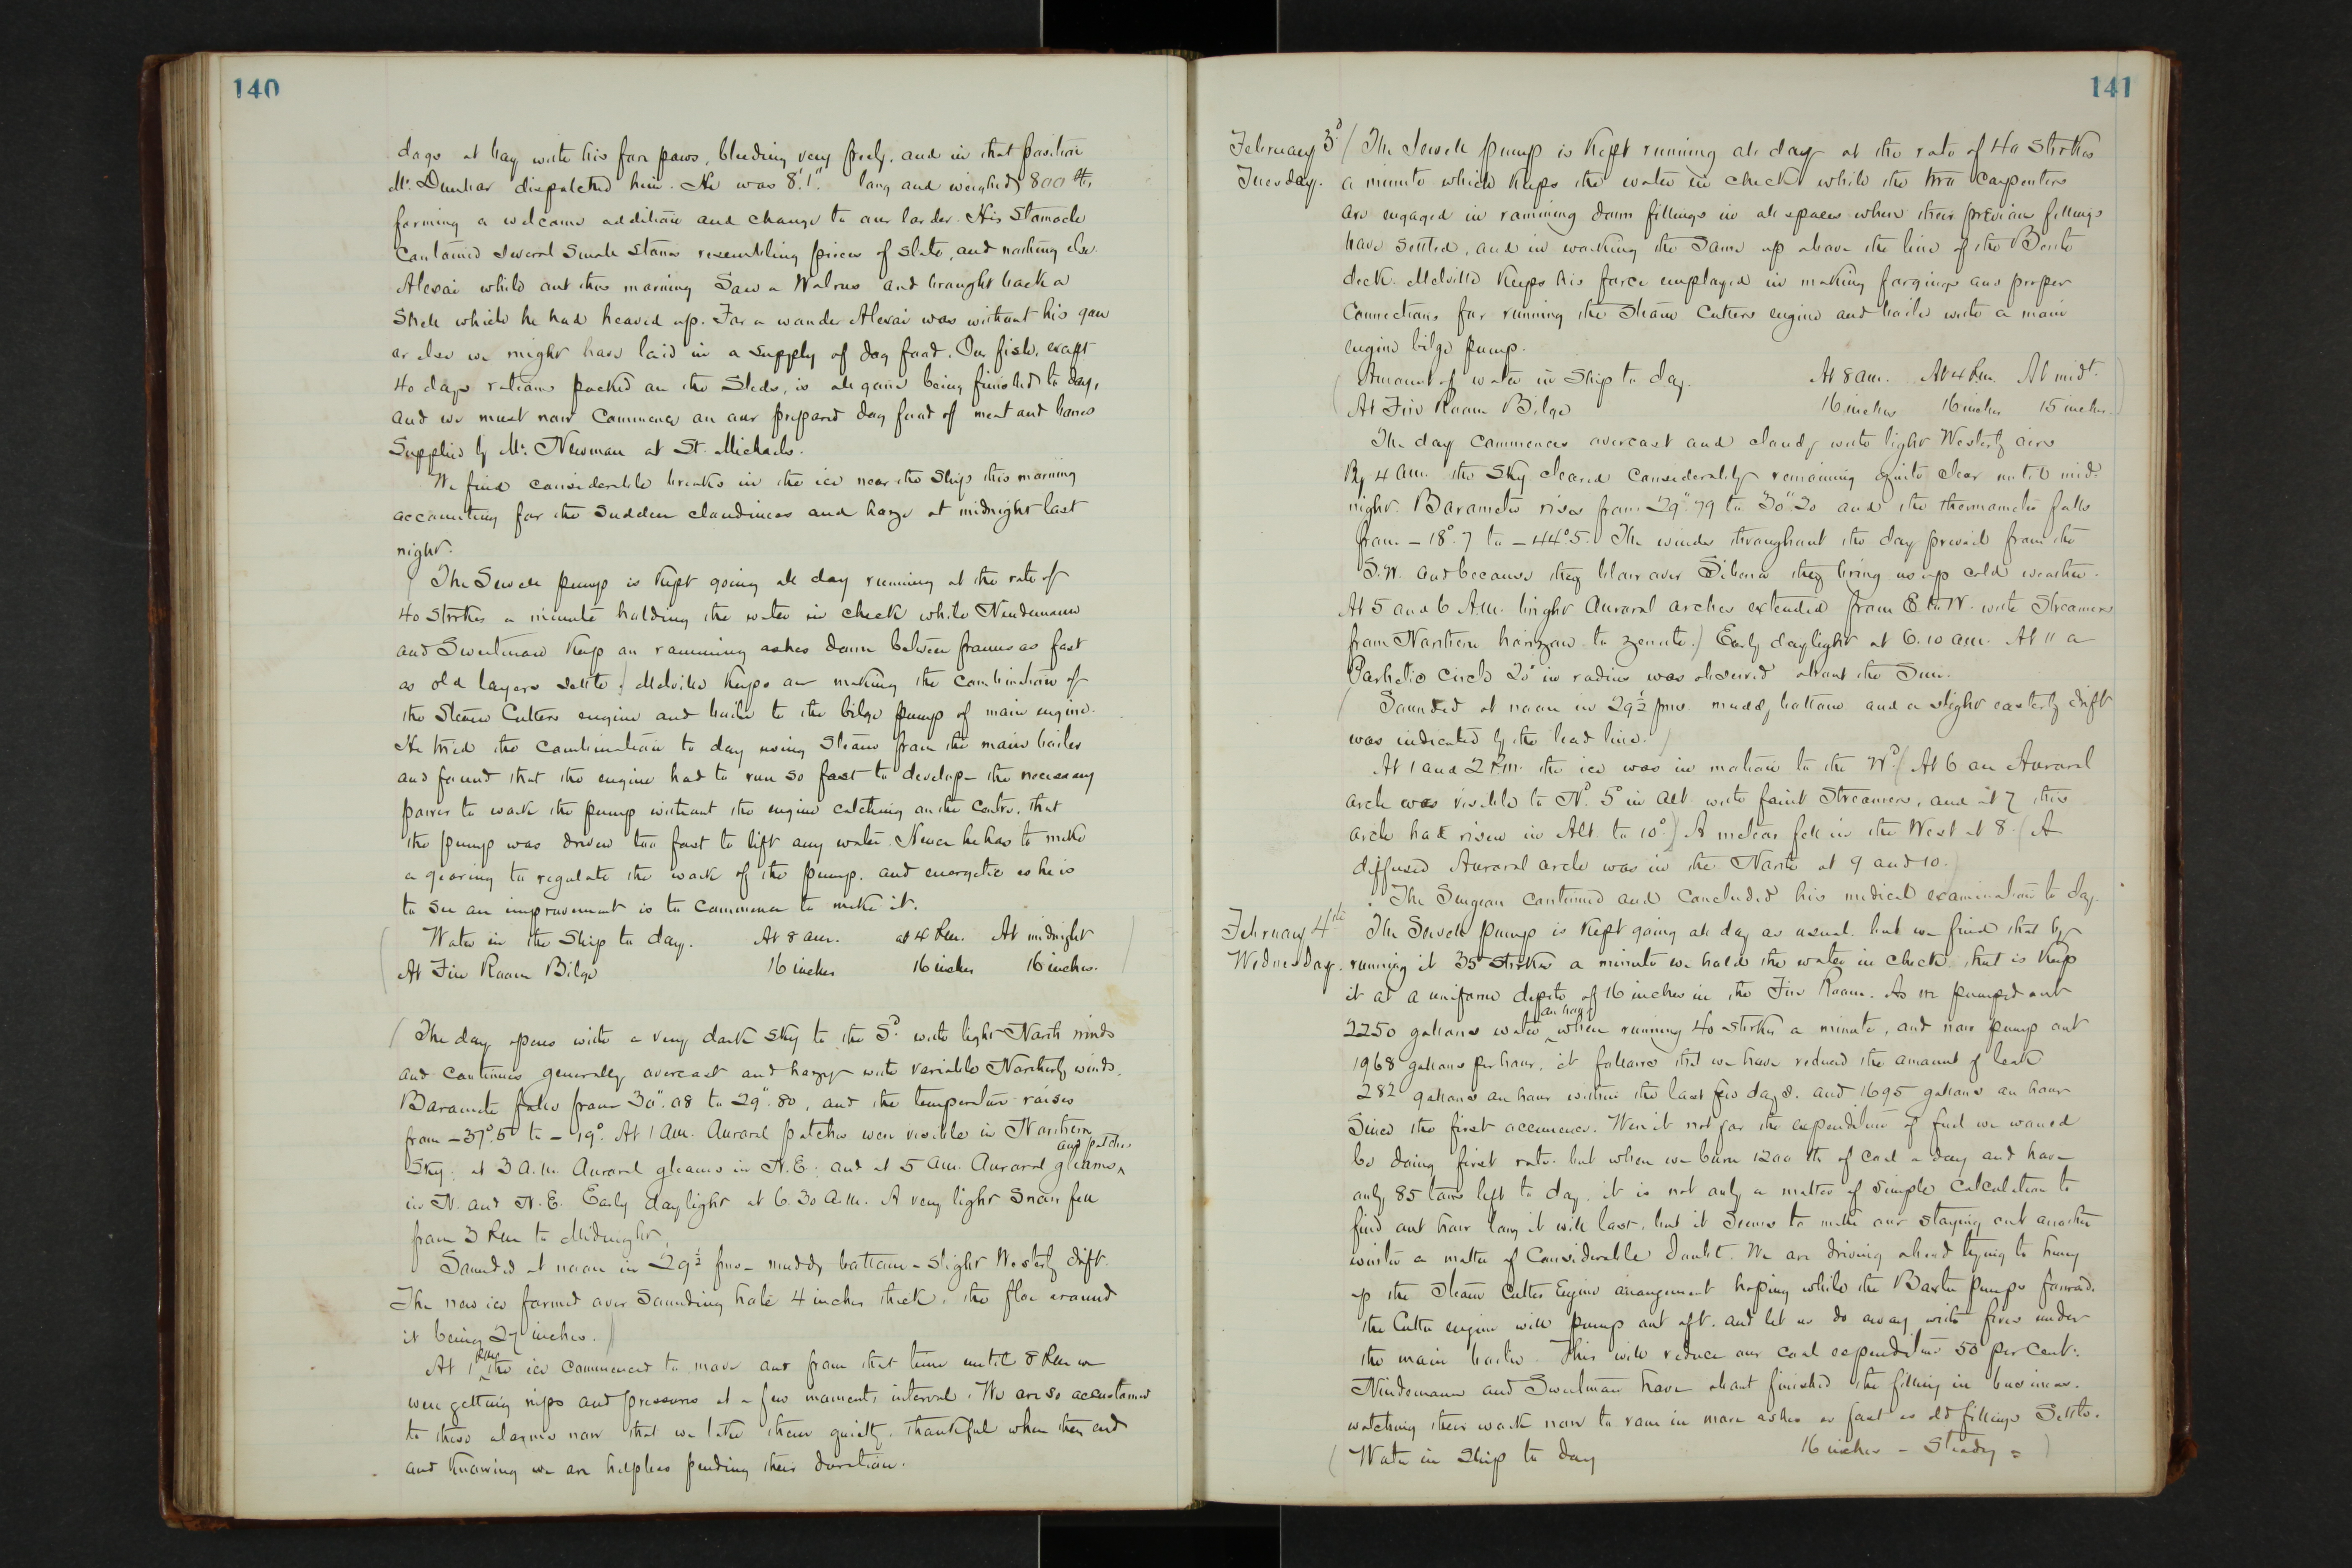 140
dogs at bay with his fore paws, bleeding very freely, and in that position
Mr. Dunbar dispatched him. He was 8'.1". long and weighed 800 lbs,
forming a welcome addition and change to our larder. His stomach
contained several small stones resembling pieces of slate, and nothing else.
Alexai while out this morning saw a Walrus and brought back a
shell which he had heaved up. For a wonder Alexai was without his gun
or else we might have laid in a supply of dog food. Our fish, except
40 days rations packed on the sleds, is all gone being finished to day,
and we must now commence on our prepared dog food of meat and bones
supplied by Mr. Newman at St. Michaels.
We find considerable breaks in the ice near the ship this morning
accounting for the sudden cloudiness and haze at midnight last
night.
( The Sewell pump is kept going all day running at the rate of
40 strokes a minute holding the water in check while Nindemann
and Sweetman keep on ramming ashes down between frames as fast
as old layers settle.) Melville keeps on making the combination of
the Steam Cutters engine and boiler to the bilge pump of main engine.
He tried the combination to day using steam from the main boiler
and found that the engine had to run so fast to develop the necessary
power to work the pump without the engine catching on the centre, that
the pump was driven too fast to lift any water. Hence he has to make
a gearing to regulate the work of the pump, and energetic as he is
to see an improvement is to commence to make it.
( Water in the Ship to day. At 8 am. at 4 P.m. At midnight )
At Fire Room Bilge 16 inches 16 inches 16 inches.
( The day opens with a very dark sky to the Sd. with light North winds
and continues generally overcast and hazy with variable Northerly winds.
Barometer falls from 30".08 to 29".80, and the temperature raises
from -37°.5 to -19°. At 1 AM. Auroral patches were visible in Northern
sky: at 3 A.M. Auroral gleams in N.E: and at 5 am. Auroral gleams and patches
in N. and N.E. Early daylight at 6.30 A.M. A very light snow fell
from 3 P.m to Midnight.
Sounded at noon in 29½ fms - muddy bottom - slight Westerly drift.
The new ice formed over sounding hole 4 inches thick, the floe around
it being 27 inches. )
At 1 P.M. the ice commenced to move and from that time until 8 P.m we
were getting nips and pressures at a few moments interval. We are so accustomed
to these alarms now that we take them quietly, thankful when they end
and knowing we are helpless pending their duration.
141
February 3d ( The Sewell pump is kept running all day at the rate of 40 strokes
Tuesday. a minute which keeps the water in check while the two carpenters
are engaged in ramming down fillings in all spaces where their previous fillings
have settled, and in working the same up above the line of the Berth
deck. Melville keeps his force employed in making forgings and proper
connections for running the Steam Cutters engine and boiler with a main
engine bilge pump.
( Amount of water in Ship to day. At 8 am. At 4 P.m. At midt.
At Fire Room Bilge 16 inches 16 inches 15 inches. )
The day commences overcast and cloudy with light Westerly airs
By 4 am. the sky cleared considerably remaining quite clear until mid-
night. Barometer rises from 29".79 to 30".20 and the thermometer falls
from -18°.7 to -44°5. The winds throughout the day prevail from the
S.W. and because they blow over Siberia they bring us up cold weather.
At 5 and 6 A.M. bright Auroral arches extended from E to W. with streamers
from Northern horizon to zenith.) Early daylight at 6.10 am. At 11 a
Parhelic circle 20° in radius was observed about the Sun.
( Sounded at noon in 29½ fms. muddy bottom and a slight easterly drift
was indicated by the lead line. )
At 1 and 2 P.M. the ice was in motion to the Wd. ( At 6 an Auroral
arch was visible to Nd. 5° in alt. with faint streamers, and at 7 this
arch had risen in Alt. to 10°.) A meteor fell in the West at 8. ( A
diffused Auroral arch was in the North at 9 and 10.
The Surgeon continued and concluded his medical examination to day.
February 4th The Sewell pump is kept going all day as usual. but we find that by
Wednesday. running it 35 strokes a minute we hold the water in check, that is keep
it at a uniform depth of 16 inches in the Fire Room. As we pumped out
2250 gallons water an hour when running 40 strokes a minute, and now pump out
1968 gallons per hour, it follows that we have reduced the amount of leak
282 gallons an hour within the last few days. and 1695 gallons an hour
since the first occurrence. Were it not for the expenditure of fuel we would
be doing first rate. but when we burn 1200 lbs of coal a day and have
only 85 tons left to day, it is not only a matter of simple calculation to
find out how long it will last, but it seems to make our staying out another
winter a matter of considerable doubt. We are driving ahead trying to hurry
up the Steam Cutter Engine arrangement hoping while the Baxter pumps forward,
the Cutter engine will pump out aft. and let us do away with fires under
the main boiler. This will reduce our coal expenditure 50 per cent.
Nindemann and Sweetman have about finished the filling in business.
watching their work now to ram in more ashes as fast as old fillings settle.
( Water in Ship to day 16 inches - Steady = )